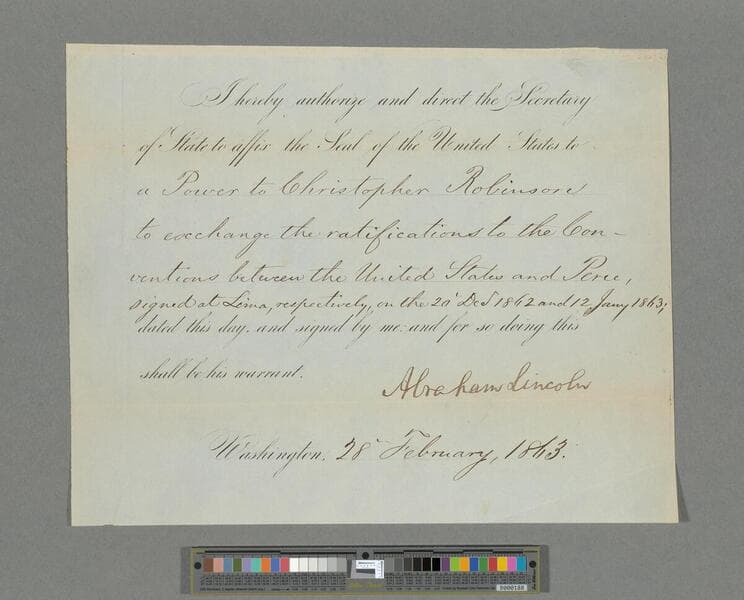 I hereby authorize and direct the Secretary
of State to affix the Seal of the United States to
a Power to Christopher Robinson
to exchange the ratifications to the Con-
ventions between the United States and Peru,
signed at Lima, respectively, on the 20' Dec 1862 and 12 Jany 1863;
dated this day, and signed by me: and for so doing this
shall be his warrant.
Abraham Lincoln
Washington, 28 February, 1863.
0000188